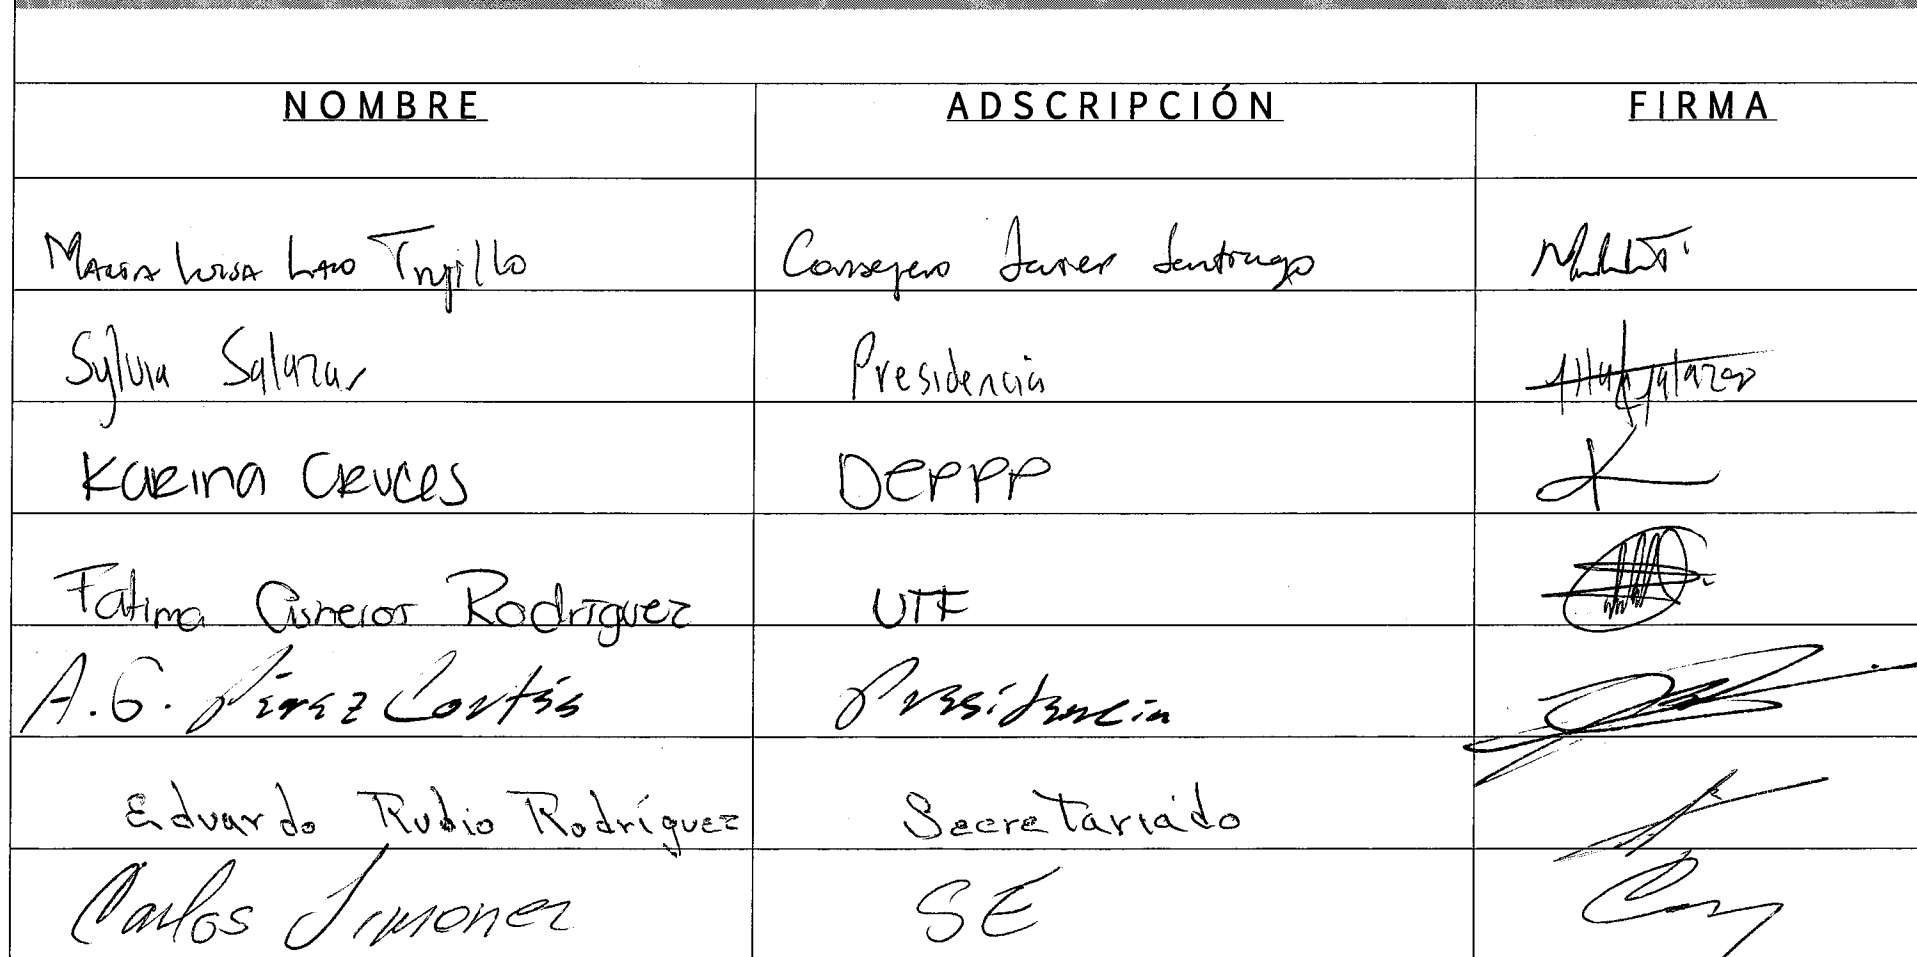 NOMBRE ADSCRIPCIÓN FIRMA
María Luisa Trujillo Consejero Javier Santiago
Sylvia Salazar Presidencia
Karina Cruces DEPPP
Fatima Cisneros Rodríguez UTF
A.G. Pérez Cortés Presidencia
Eduardo Rubio Rodríguez Secretariado
Carlos Jimenez SE